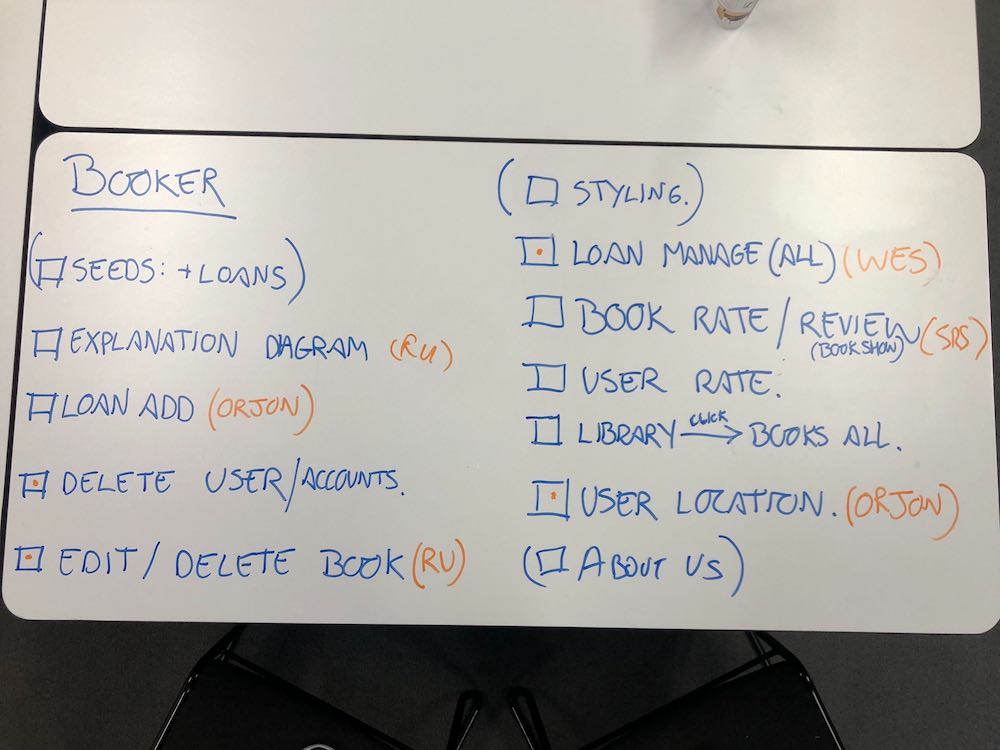 BOOKER
(☐ SEEDS: + LOANS)
☐ EXPLANATION DIAGRAM (RU)
☐ LOAN ADD (ORJON)
⊡ DELETE USER/ACCOUNTS.
⊡ EDIT / DELETE BOOK (RU)
(☐ STYLING.)
⊡ LOAN MANAGE (ALL) (WES)
☐ BOOK RATE / REVIEW (SRS)
(BOOK SHOW)
☐ USER RATE.
CLICK
☐ LIBRARY → BOOKS ALL.
⊡ USER LOCATION. (ORJON)
(☐ ABOUT US)